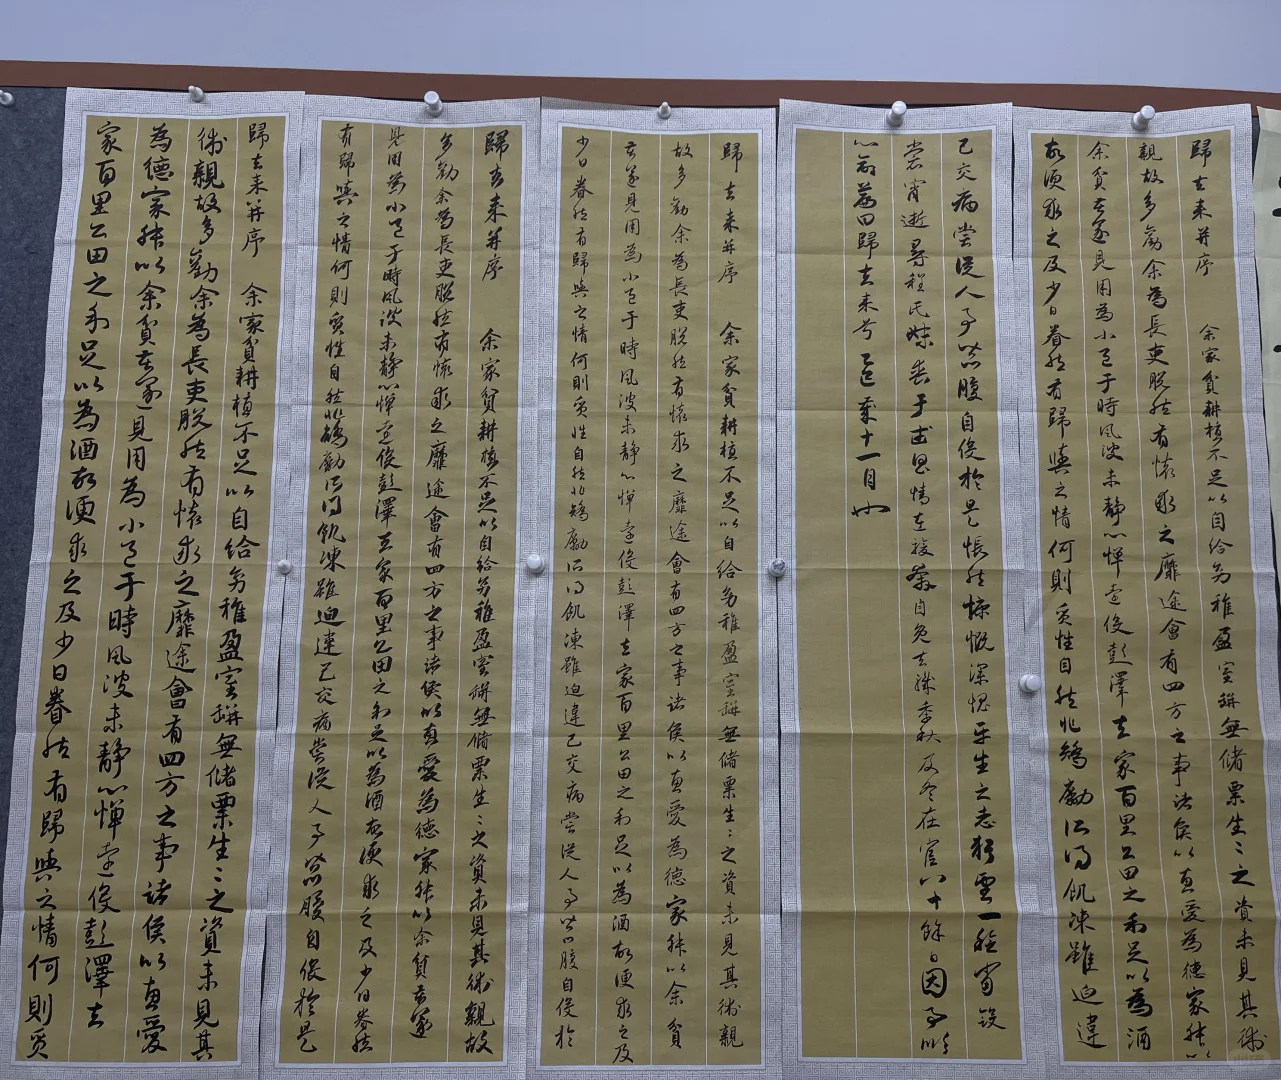 歸去来并序 余家貧耕植不足以自給幼稚盈室缾無儲粟生〻之資未見其術
親故多勸余為長吏脱然有懷求之靡途會有四方之事諸侯以惠愛為德家叔以
余貧苦遂見用為小邑于時風波未静心憚遠役彭澤去家百里公田之利足以為酒
故便求之及少日眷然有歸與之情何則質性自然非矯勵所得飢凍雖迫違
己交病嘗從人事皆口腹自役於是悵然慷慨深愧平生之志猶望一稔當斂
裳宵逝尋程氏妹喪于武昌情在駿奔自免去職季秋及冬在官八十餘日因事順
心命篇曰歸去来兮乙巳歲十一月也
歸去来并序 余家貧耕植不足以自給幼稚盈室缾無儲粟生〻之資未見其術親
故多勸余為長吏脱然有懷求之靡途會有四方之事諸侯以惠愛為德家叔以余貧
苦遂見用為小邑于時風波未静心憚遠役彭澤去家百里公田之利足以為酒故便求之及
少日眷然有歸與之情何則質性自然非矯勵所得飢凍雖迫違己交病嘗從人事皆口腹自役於
歸去来并序 余家貧耕植不足以自給幼稚盈室缾無儲粟生〻之資未見其術親故
多勸余為長吏脱然有懷求之靡途會有四方之事諸侯以惠愛為德家叔以余貧苦遂
見用為小邑于時風波未静心憚遠役彭澤去家百里公田之利足以為酒故便求之及少日眷然
有歸與之情何則質性自然非矯勵所得飢凍雖迫違己交病嘗從人事皆口腹自役於是
歸去来并序 余家貧耕植不足以自給幼稚盈室缾無儲粟生〻之資未見其
術親故多勸余為長吏脱然有懷求之靡途會有四方之事諸侯以惠愛
為德家叔以余貧苦遂見用為小邑于時風波未静心憚遠役彭澤去
家百里公田之利足以為酒故便求之及少日眷然有歸與之情何則質